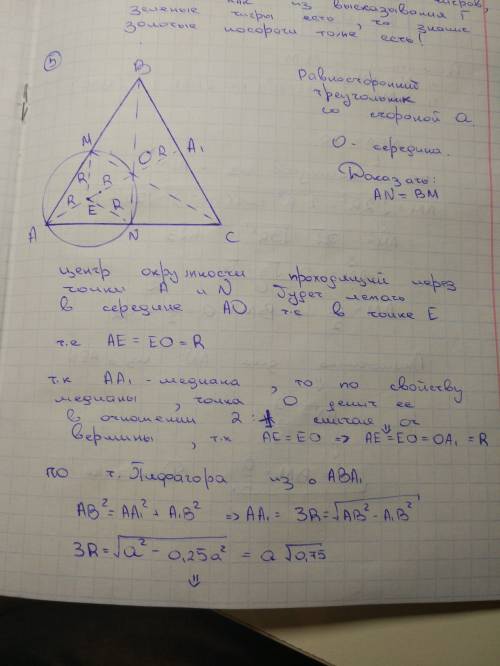 как из высказывания Г
зеленые тигры есть, то знаем
золотые носороги тоже есть!
5
B
M
O
R
A₁
R
R
R
E
R
A
N
C
Равносторонний
треугольник
со стороной a.
O - середина.
Доказать:
AN = BM
центр окружности проходящий через
точки A и N будет лежать
в середине AO т.е в точке E
т.е AE = EO = R
т.к AA₁ - медиана, то по свойству
медианы, точка O делит ее
в отношении 2:1 считая от
вершины, т.к AE = EO => AE = EO = OA₁ = R
по т. Пифагора из △ ABA₁
AB² = AA₁² + A₁B² => AA₁ = 3R = √AB² - A₁B²
3R = √a² - 0,25a² = a √0,75
⇓